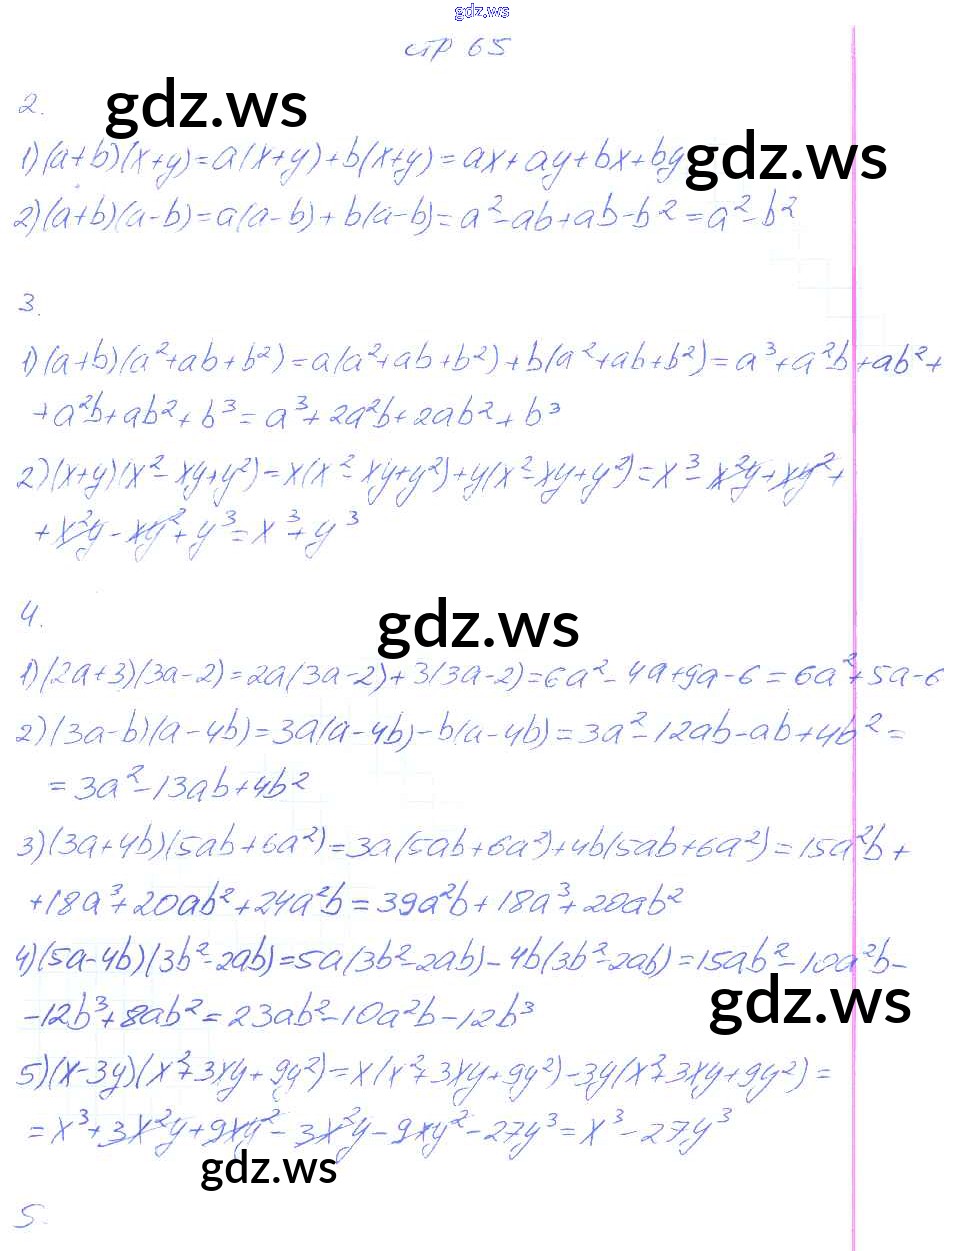 gdz.ws
стр 65
2.
gdz.ws
1)(a+b)(x+y)=a(x+y)+b(x+y)=ax+ay+bx+by
gdz.ws
2)(a+b)(a-b)=a(a-b)+b(a-b)=a²-ab+ab-b²=a²-b²
3.
1)(a+b)(a²+ab+b²)=a(a²+ab+b²)+b(a²+ab+b²)=a³+a²b+ab²+
+a²b+ab²+b³=a³+2a²b+2ab²+b³
2)(x+y)(x²-xy+y²)=x(x²-xy+y²)+y(x²-xy+y²)=x³-x²y+xy²+
+x²y-xy²+y³=x³+y³
4.
gdz.ws
1)(2a+3)(3a-2)=2a(3a-2)+3(3a-2)=6a²-4a+9a-6=6a²+5a-6
2)(3a-b)(a-4b)=3a(a-4b)-b(a-4b)=3a²-12ab-ab+4b²=
=3a²-13ab+4b²
3)(3a+4b)(5ab+6a²)=3a(5ab+6a²)+4b(5ab+6a²)=15a²b+
+18a³+20ab²+24a²b=39a²b+18a³+20ab²
4)(5a-4b)(3b²-2ab)=5a(3b²-2ab)-4b(3b²-2ab)=15ab²-10a²b-
gdz.ws
-12b³+8ab²=23ab²-10a²b-12b³
5)(x-3y)(x²+3xy+9y²)=x(x²+3xy+9y²)-3y(x²+3xy+9y²)=
=x³+3x²y+9xy²-3x²y-9xy²-27y³=x³-27y³
gdz.ws
5.